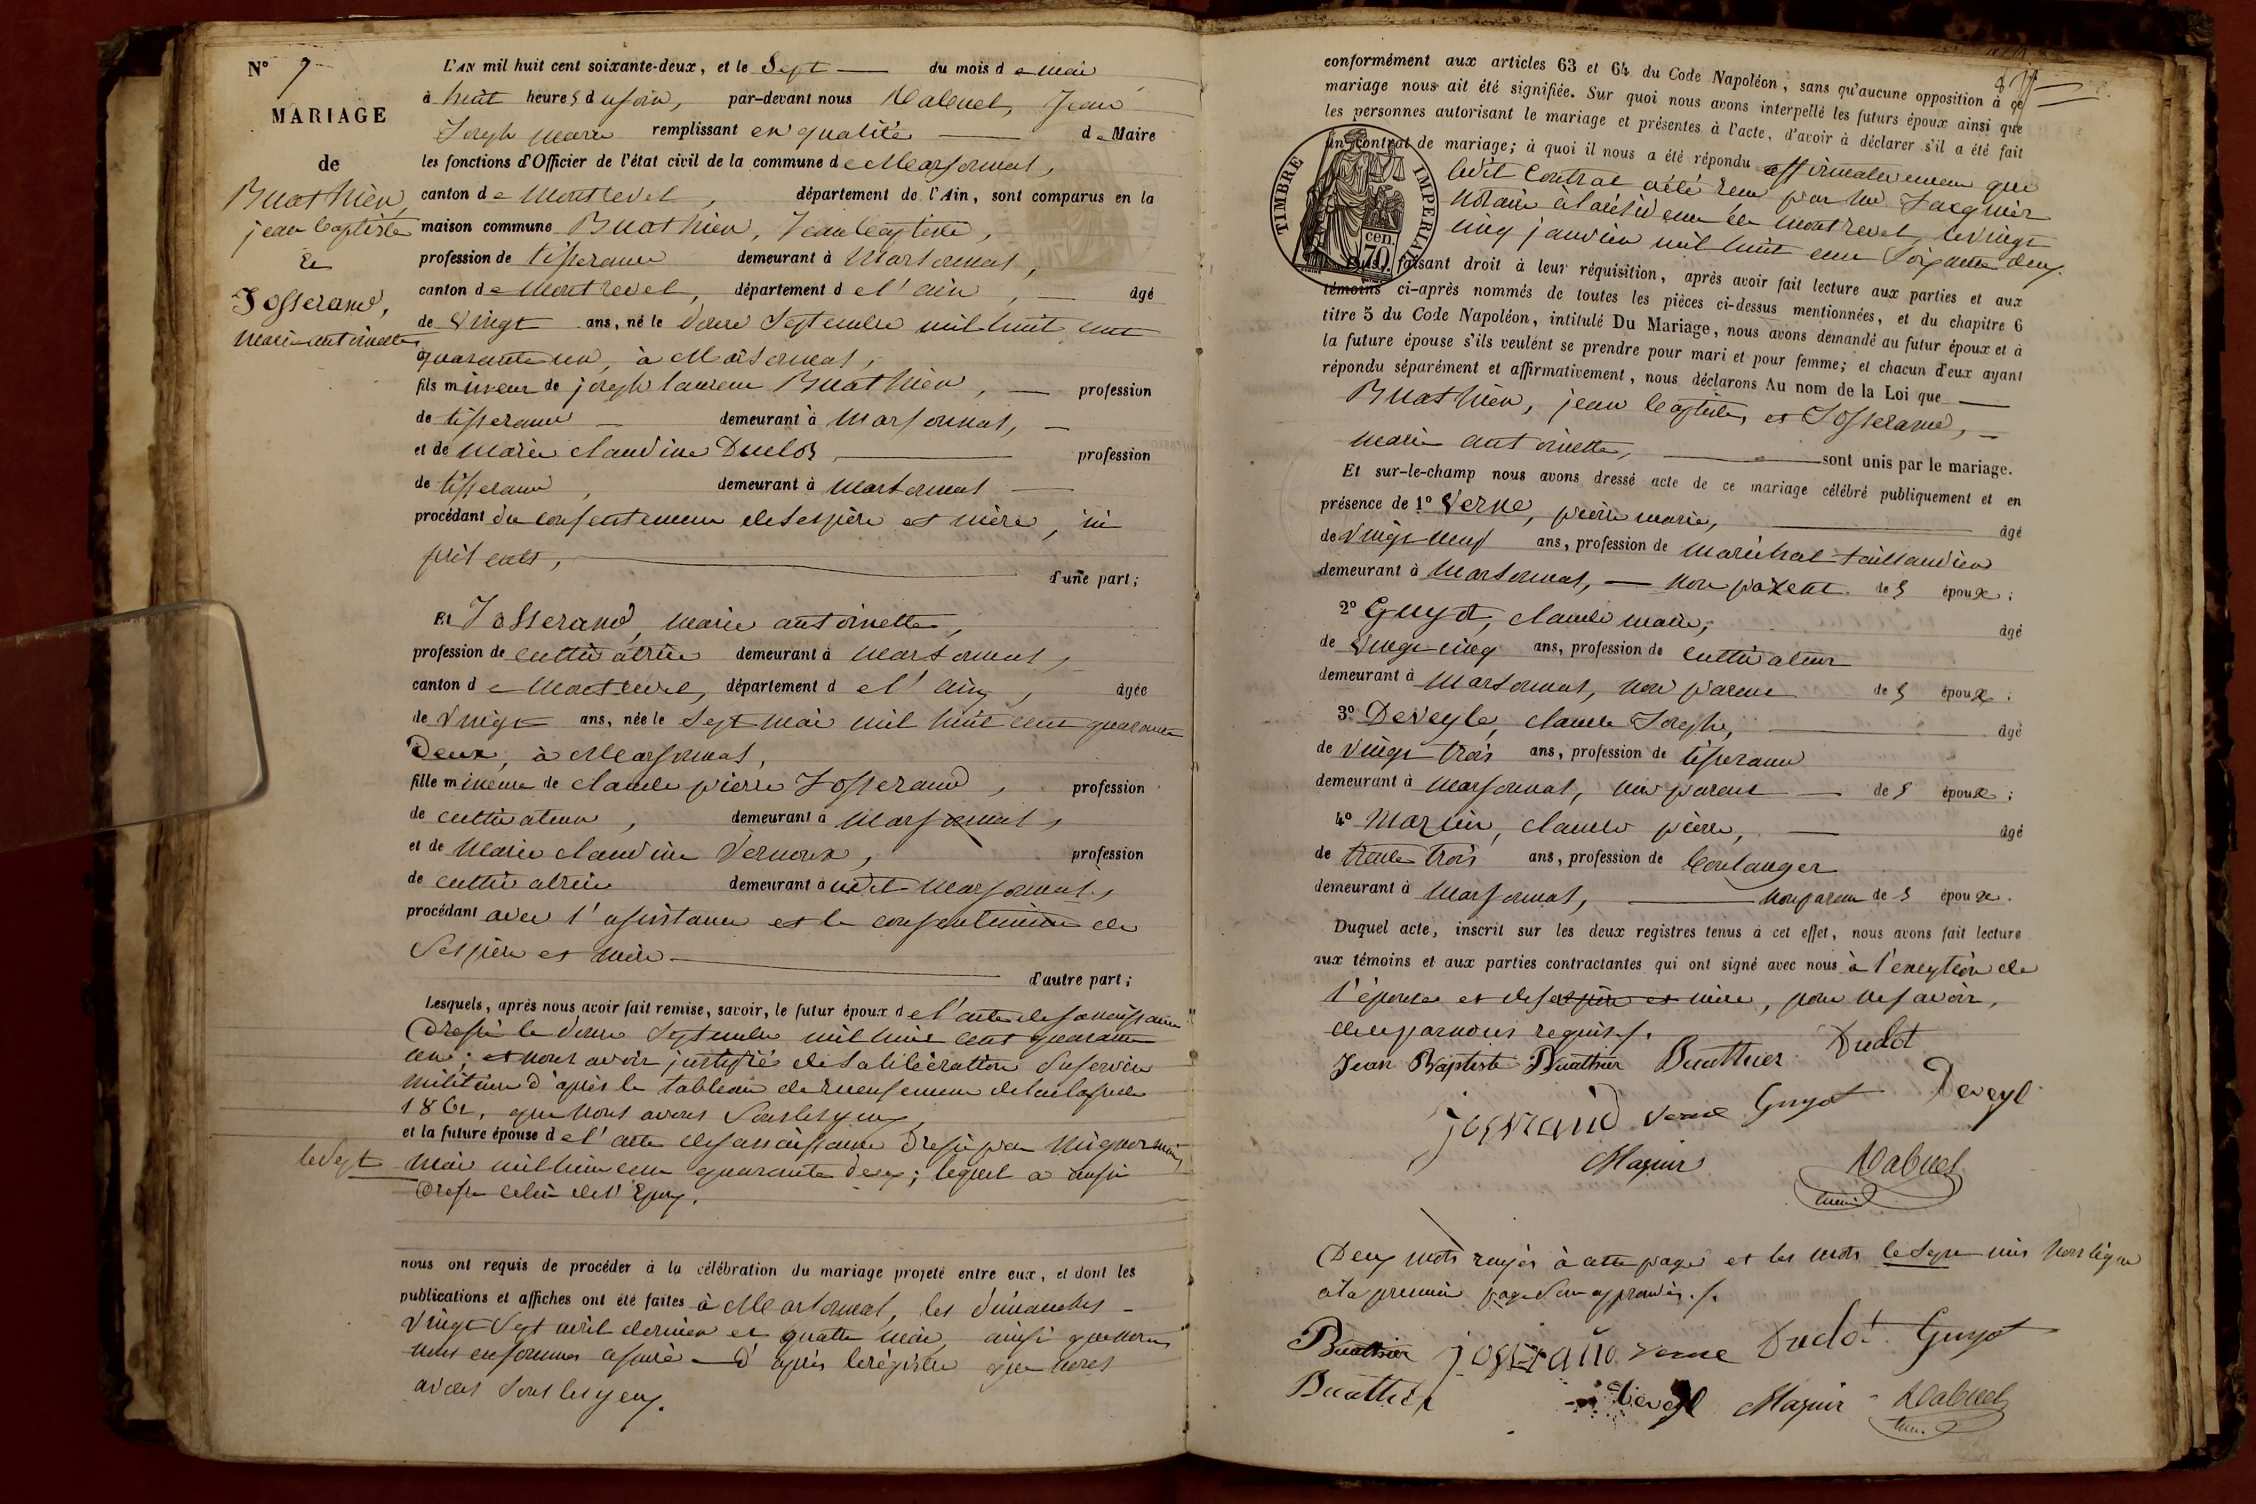 N° 7
MARIAGE
de
Buathier,
jean Baptiste
et
Josserand,
marie antoinette
L'AN mil huit cent soixante-deux, et le Sept du mois de mai
à huit heures du soir, par-devant nous Rabuel, Jean
Joseph marie remplissant en qualité de Maire
les fonctions d'Officier de l'état civil de la commune de Marsonnas,
canton de Montrevel, département de l'Ain, sont comparus en la
maison commune Buathier, Jean Baptiste,
profession de tisserand demeurant à Marsonnas,
canton de Montrevel, département de l'ain, âgé
de vingt ans, né le douze Septembre mil huit cent
quarante un, à Marsonnas,
fils mineur de joseph laurent Buathier, profession
de tisserand demeurant à Marsonnas,
et de marie claudine Duclos, profession
de tisserand, demeurant à Marsonnas
procédant du consentement de ses père et mère, ici
présents,
d'une part;
Et Josserand, marie antoinette,
profession de cultivatrice demeurant à Marsonnas,
canton de Montrevel, département de l'ain, âgée
de vingt ans, née le Sept mai mil huit cent quarante
Deux, à Marsonnas,
fille mineure de claude pierre Josserand, profession
de cultivateur, demeurant à Marsonnas,
et de Marie claudine Vernoux, profession
de cultivatrice demeurant à udit Marsonnas,
procédant avec l'assistance et le consentement de
Ses père et mère
d'autre part;
Lesquels, après nous avoir fait remise, savoir, le futur époux de l'acte de sa naissance
Dressé le douze Septembre mil huit cent quarante
un; et nous avoir justifié de sa libération du service
militaire d'après le tableau de recensement de la classe de
1861, que nous avons sous les yeux,
et la future épouse de l'acte de sa naissance Dressé par
le Sept mai mil huit cent quarante deux; lequel a aussi
Dressé celui de l'Epoux.
nous ont requis de procéder à la célébration du mariage projeté entre eux, et dont les
publications et affiches ont été faites à Marsonnas, les dimanches
vingt Sept avril dernier et quatre mai, ainsi que nous
nous en sommes assuré d'après le régistre que nous
avons sous les yeux.
conformément aux articles 63 et 64 du Code Napoléon, sans qu'aucune opposition à ce
mariage nous ait été signifiée. Sur quoi nous avons interpellé les futurs époux ainsi que
les personnes autorisant le mariage et présentes à l'acte, d'avoir à déclarer s'il a été fait
un contrat de mariage; à quoi il nous a été répondu affirmativement que
ledit Contrat a été reçu par Me Jacquier
notaire à la résidence de montrevel, le vingt
cinq janvier mil huit cent Soixante deux.
TIMBRE IMPERIAL
70 cen.
Puis, faisant droit à leur réquisition, après avoir fait lecture aux parties et aux
témoins ci-après nommés de toutes les pièces ci-dessus mentionnées, et du chapitre 6
titre 5 du Code Napoléon, intitulé Du Mariage, nous avons demandé au futur époux et à
la future épouse s'ils veulent se prendre pour mari et pour femme; et chacun d'eux ayant
répondu séparément et affirmativement, nous déclarons Au nom de la Loi que
Buathier, jean baptiste, et Josserand,
marie antoinette, sont unis par le mariage.
Et sur-le-champ nous avons dressé acte de ce mariage célébré publiquement et en
présence de 1° Verne, pierre marie, âgé
de vingt neuf ans, profession de maréchal taillandier
demeurant à Marsonnas, non parent des époux;
2° Guyot, claude marie, âgé
de vingt cinq ans, profession de cultivateur
demeurant à Marsonnas, non parent des époux;
3° Deveyle, claude Joseph, âgé
de vingt trois ans, profession de tisserand
demeurant à Marsonnas, non parent des époux;
4° Mazuir, claude pierre, âgé
de trente trois ans, profession de boulanger
demeurant à Marsonnas, non parent des époux.
Duquel acte, inscrit sur les deux registres tenus à cet effet, nous avons fait lecture
aux témoins et aux parties contractantes qui ont signé avec nous à l'exception de
l'épouse et de sa père et mère, pour ne savoir,
de ce par nous requises.
Jean Baptiste Buathier Buathier Duclot
josserand Verne Guyot Deveyl
Mazuir Rabuel
maire
Deux mots rayés à cette page et les mots le Sept mis hors ligne
à la première page Sont approuvés.
Buathier josserand Verne Duclot Guyot
Buathier Deveyl Mazuir Rabuel